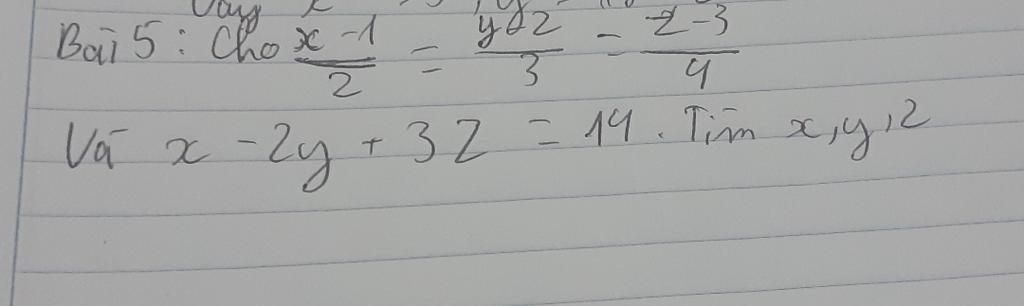 Bài 5: Cho \frac{x-1}{2} = \frac{y-2}{3} = \frac{z-3}{4}
Và x - 2y + 3z = 14. Tìm x, y, z